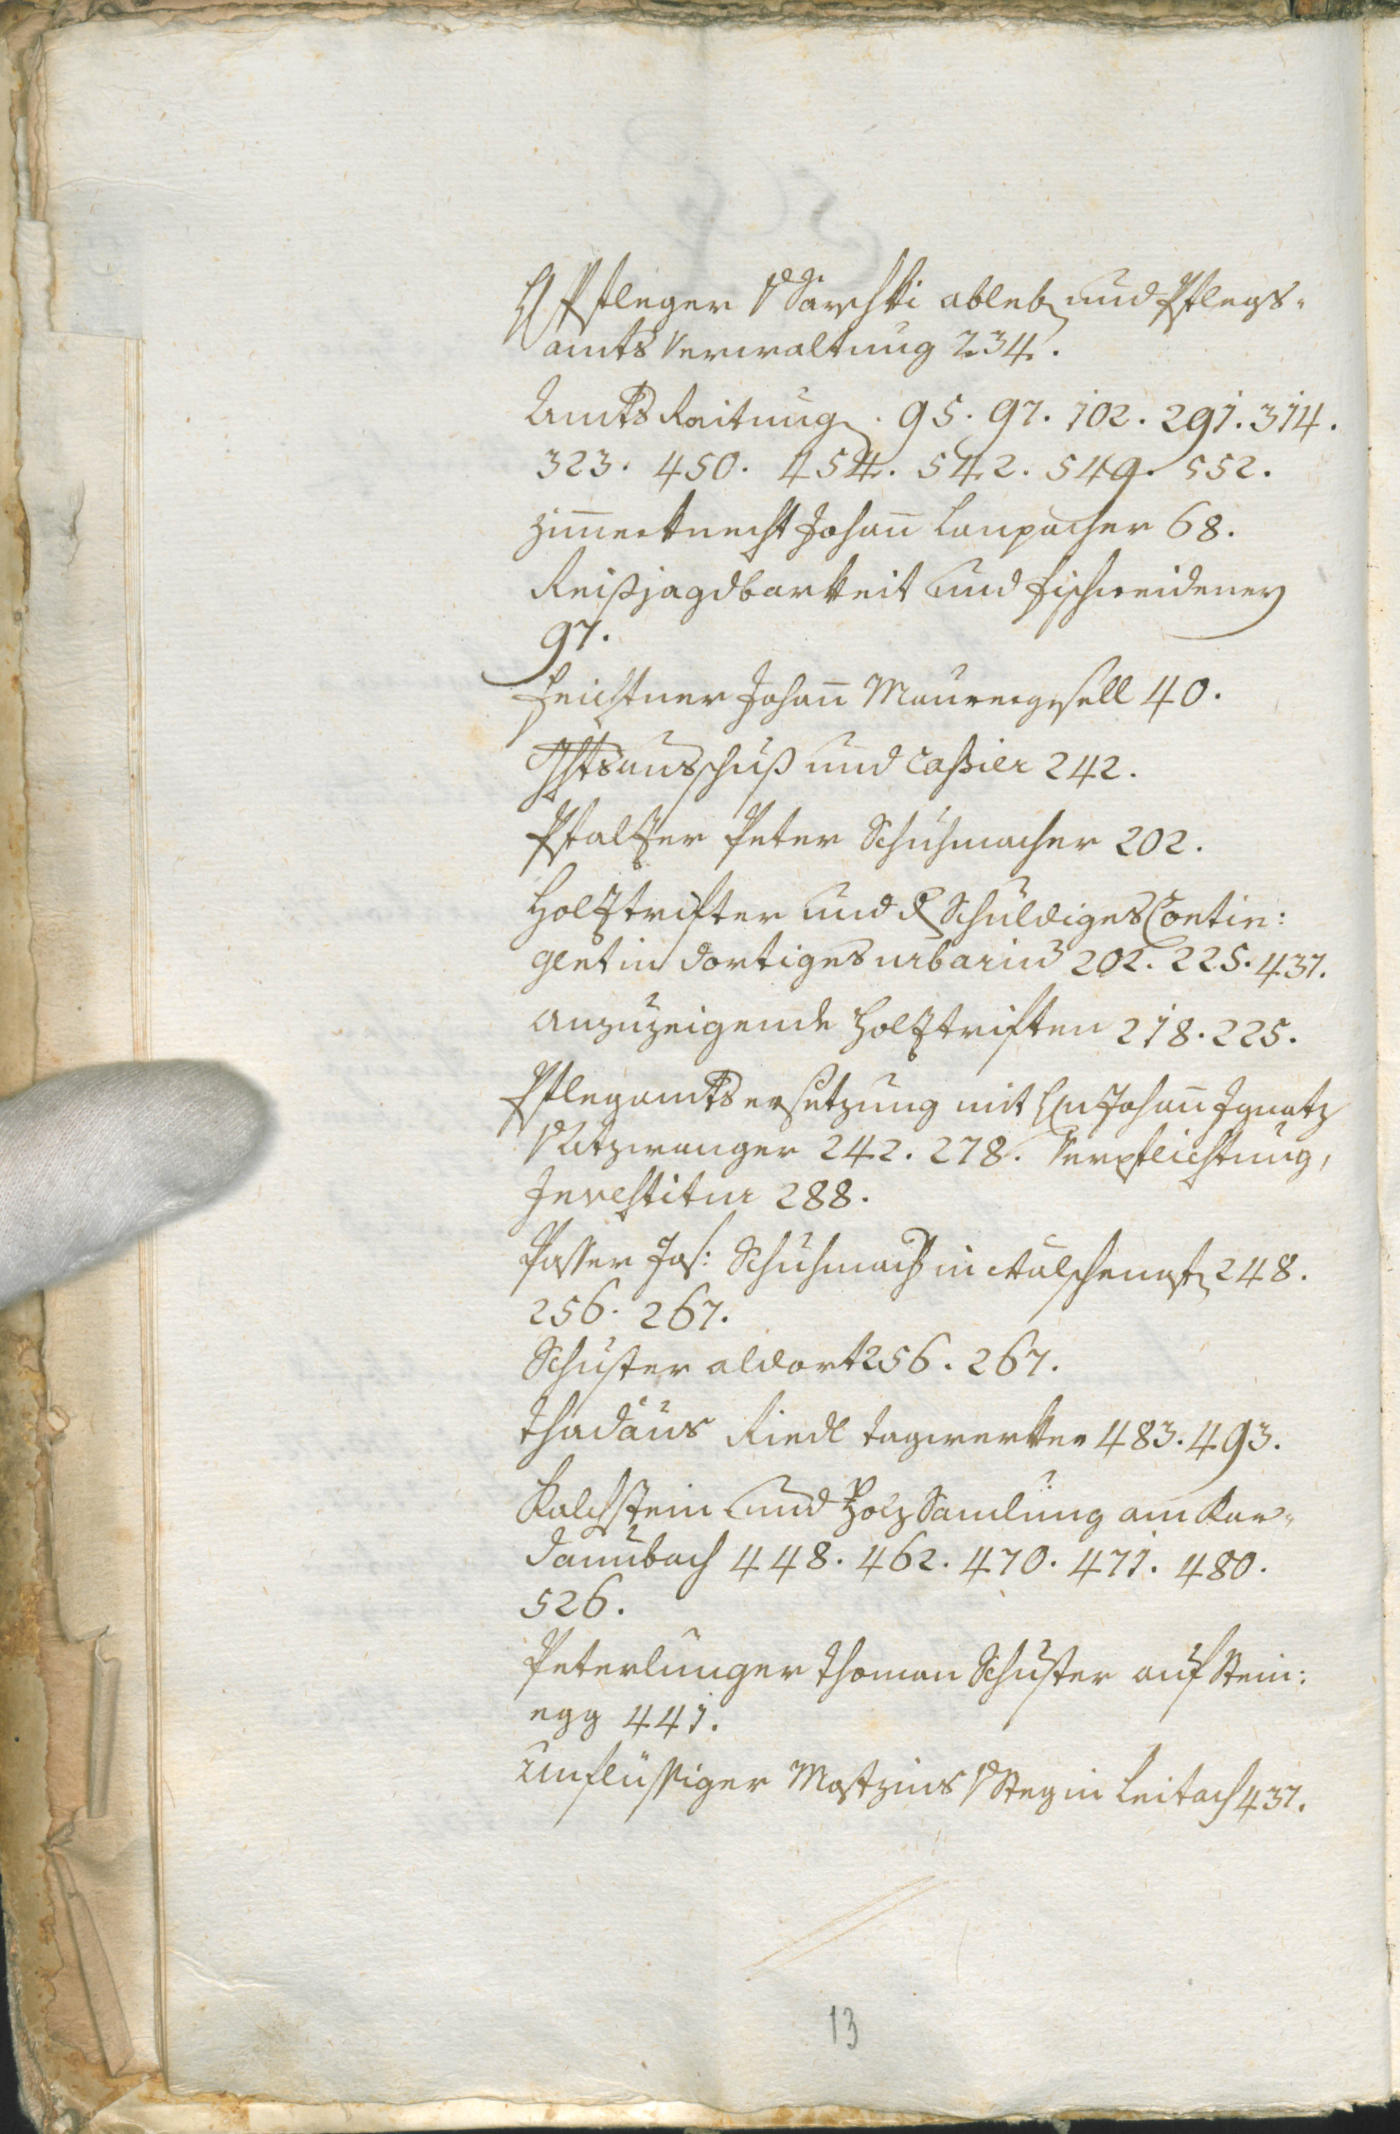 H Pfleger v Sarchti ableb und Pflegs-
amts Verwaltung 234.
Ambts Raitung. 95. 97. 102. 291. 314.
323. 450. 454. 542. 549. 552.
Zimerknecht Johan Lanpacher 68.
Reißjagdbarkeit und Fischweideney
97.
Feichtner Johan Maurergesell 40.
Ghtsausschuß und Cassier 242.
Pfaltzer Peter Schuhmacher 202.
Holztrifter und Schuldiges Contin:
gent in dortiges urbariu 202. 225. 437.
anzuzeigende Holztriften 218. 225.
Pflegambtsersetzung mit Hrn Johan Ignatz
v Atzwanger 242. 278. Verpflichtung,
Investitur 288.
Passer Jos: Schuhmach in 248.
256. 267.
Schuster aldort 256. 267.
Thadäus Riedl tagwerker 483. 493.
Kalchstein und Holz Samlung am Kar-
daunbach 448. 462. 470. 471. 480.
526.
Peterlunger Thoman Schuster auf Stein:
egg 441.
Unflüssiger Mostzins v Steg in Leitach 437.
13